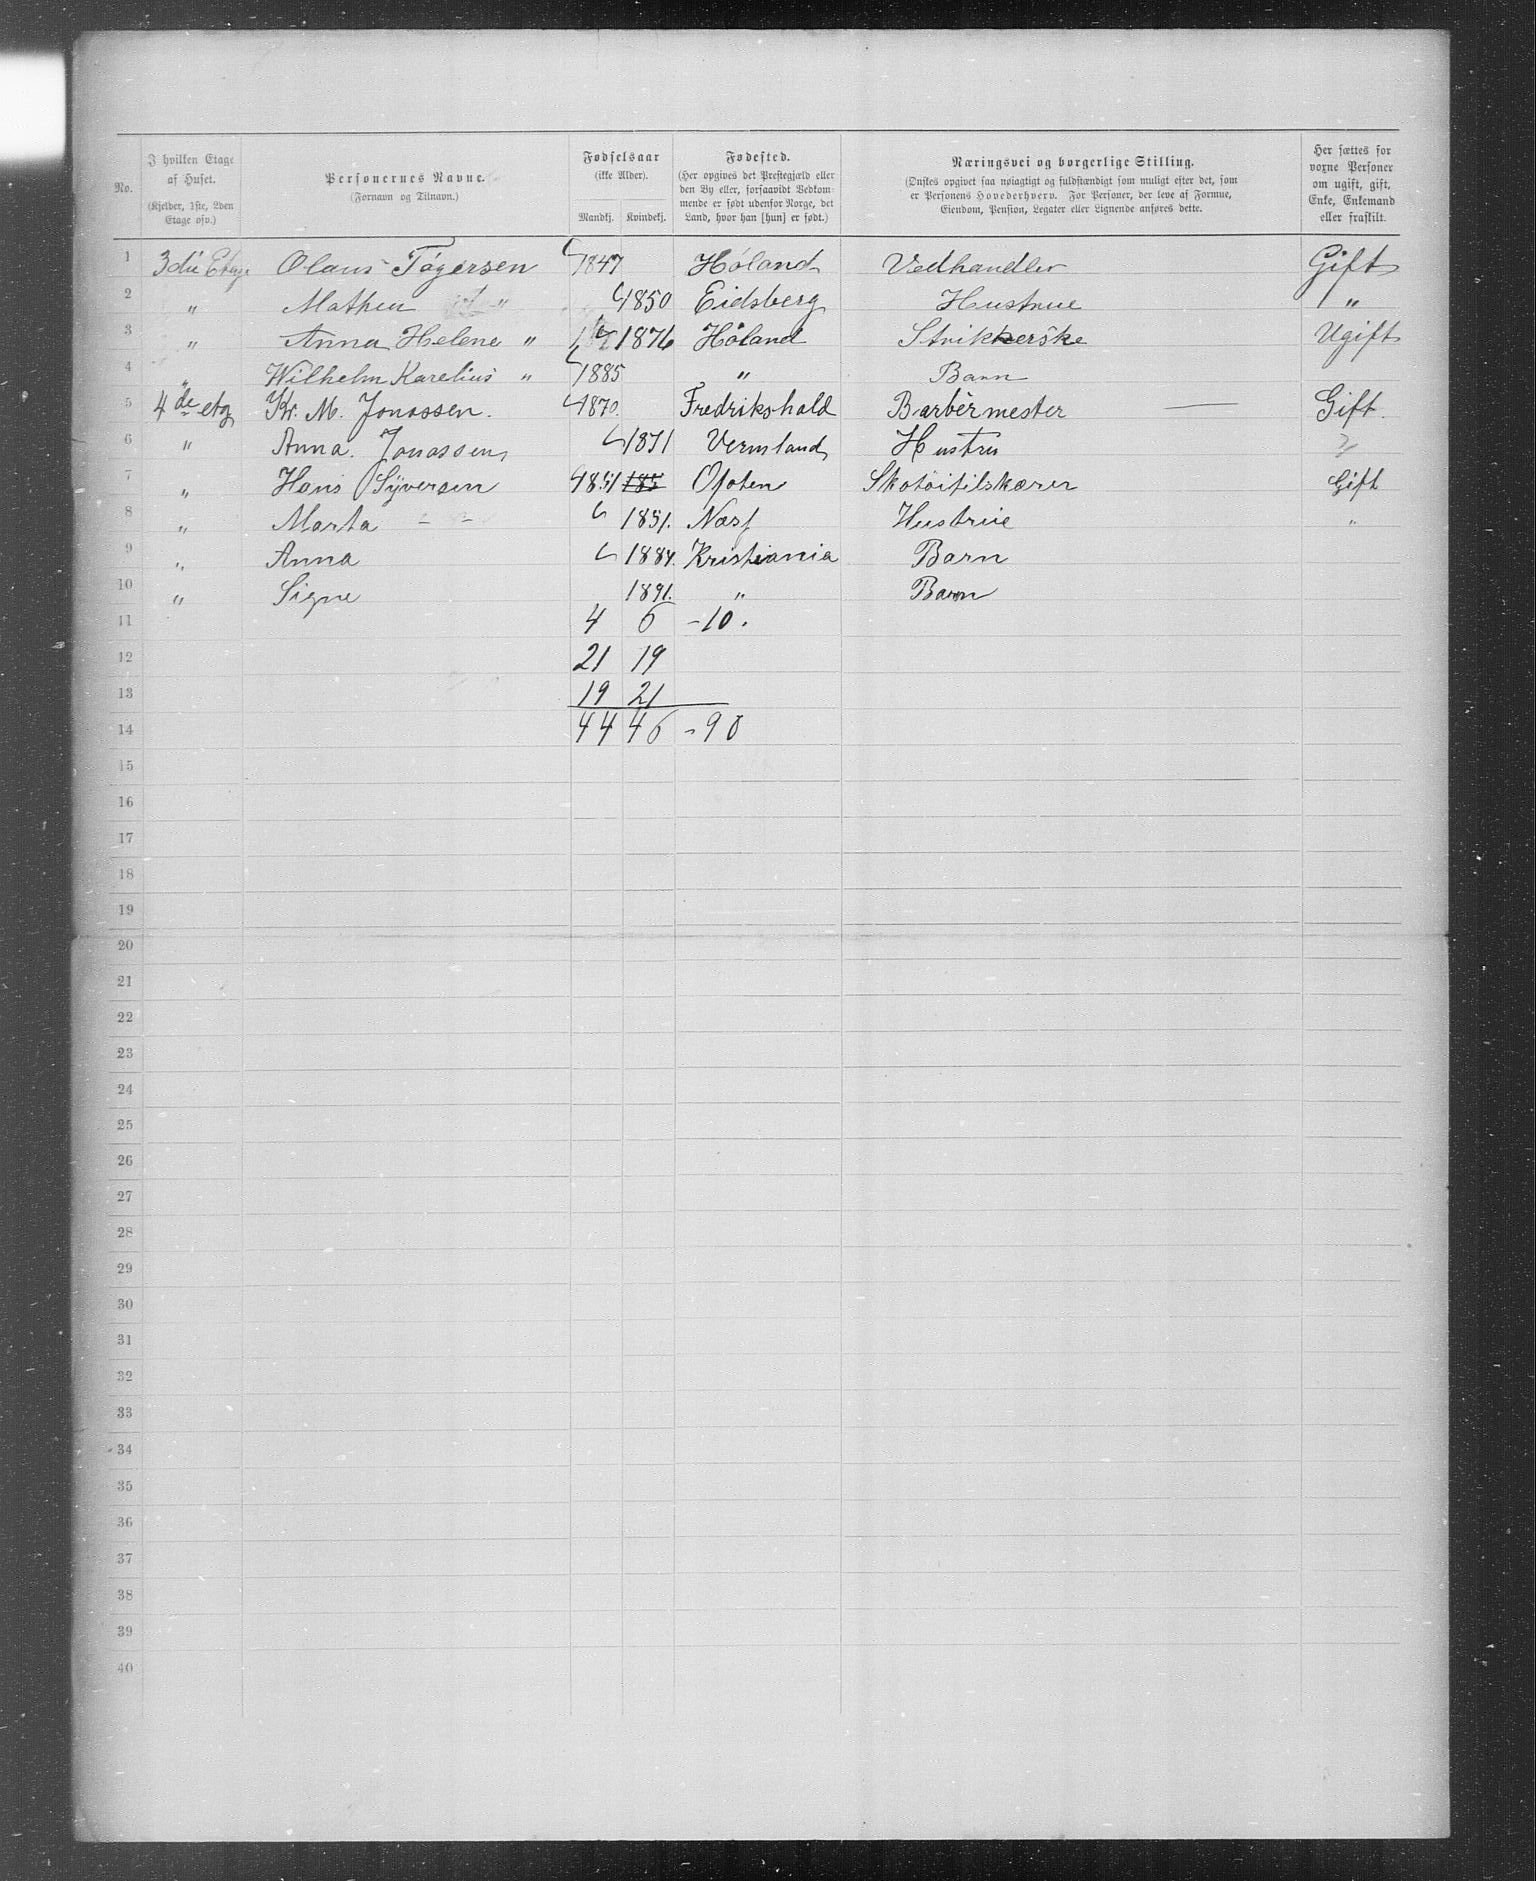 No. | I hvilken Etage af Huset. (Kjelder, 1ste, 2den Etage osv.) | Personernes Navne. (Fornavn og Tilnavn.) | Fødselsaar (ikke Alder). Mandkj. | Kvindekj. | Fødested. (Her opgives det Prestegjæld eller den By eller, forsaavidt Vedkommende er født udenfor Norge, det Land, hvor han [hun] er født.) | Næringsvei og borgerlige Stilling. (Ønskes opgivet saa nøiagtigt og fuldstændigt som muligt efter det, som er Personens Hovederhverv. For Personer, der leve af Formue, Eiendom, Pension, Legater eller Lignende anføres dette. | Her sættes for voxne Personer om ugift, gift, Enke, Enkemand eller fraskilt.
1 3die Etage Olaus Tøgersen 1847 Høland Vedhandler Gift
2 " Mathea " 1850 Eidsberg Hustrue "
3 " Anna Helene " 1876 Høland Strikkerske Ugift
4 " Wilhelm Karelius " 1885 " Barn
5 4de etg Kr. M. Jonassen. 1870. Fredrikshald Barbérmester — Gift.
6 " Anna. Jonassen 1871 Vermland Hustru
7 " Hans Syversen 1851 185 Ofoten Skotøitilskærer Gift
8 " Marta - - 1851. Næs Hustrue "
9 " Anna 1884. Kristiania Barn
10 " Signe 1891. " Barn
11 4 6 -10.
12 21 19
13 19 21
14 44 46 -90
15
16
17
18
19
20
21
22
23
24
25
26
27
28
29
30
31
32
33
34
35
36
37
38
39
40